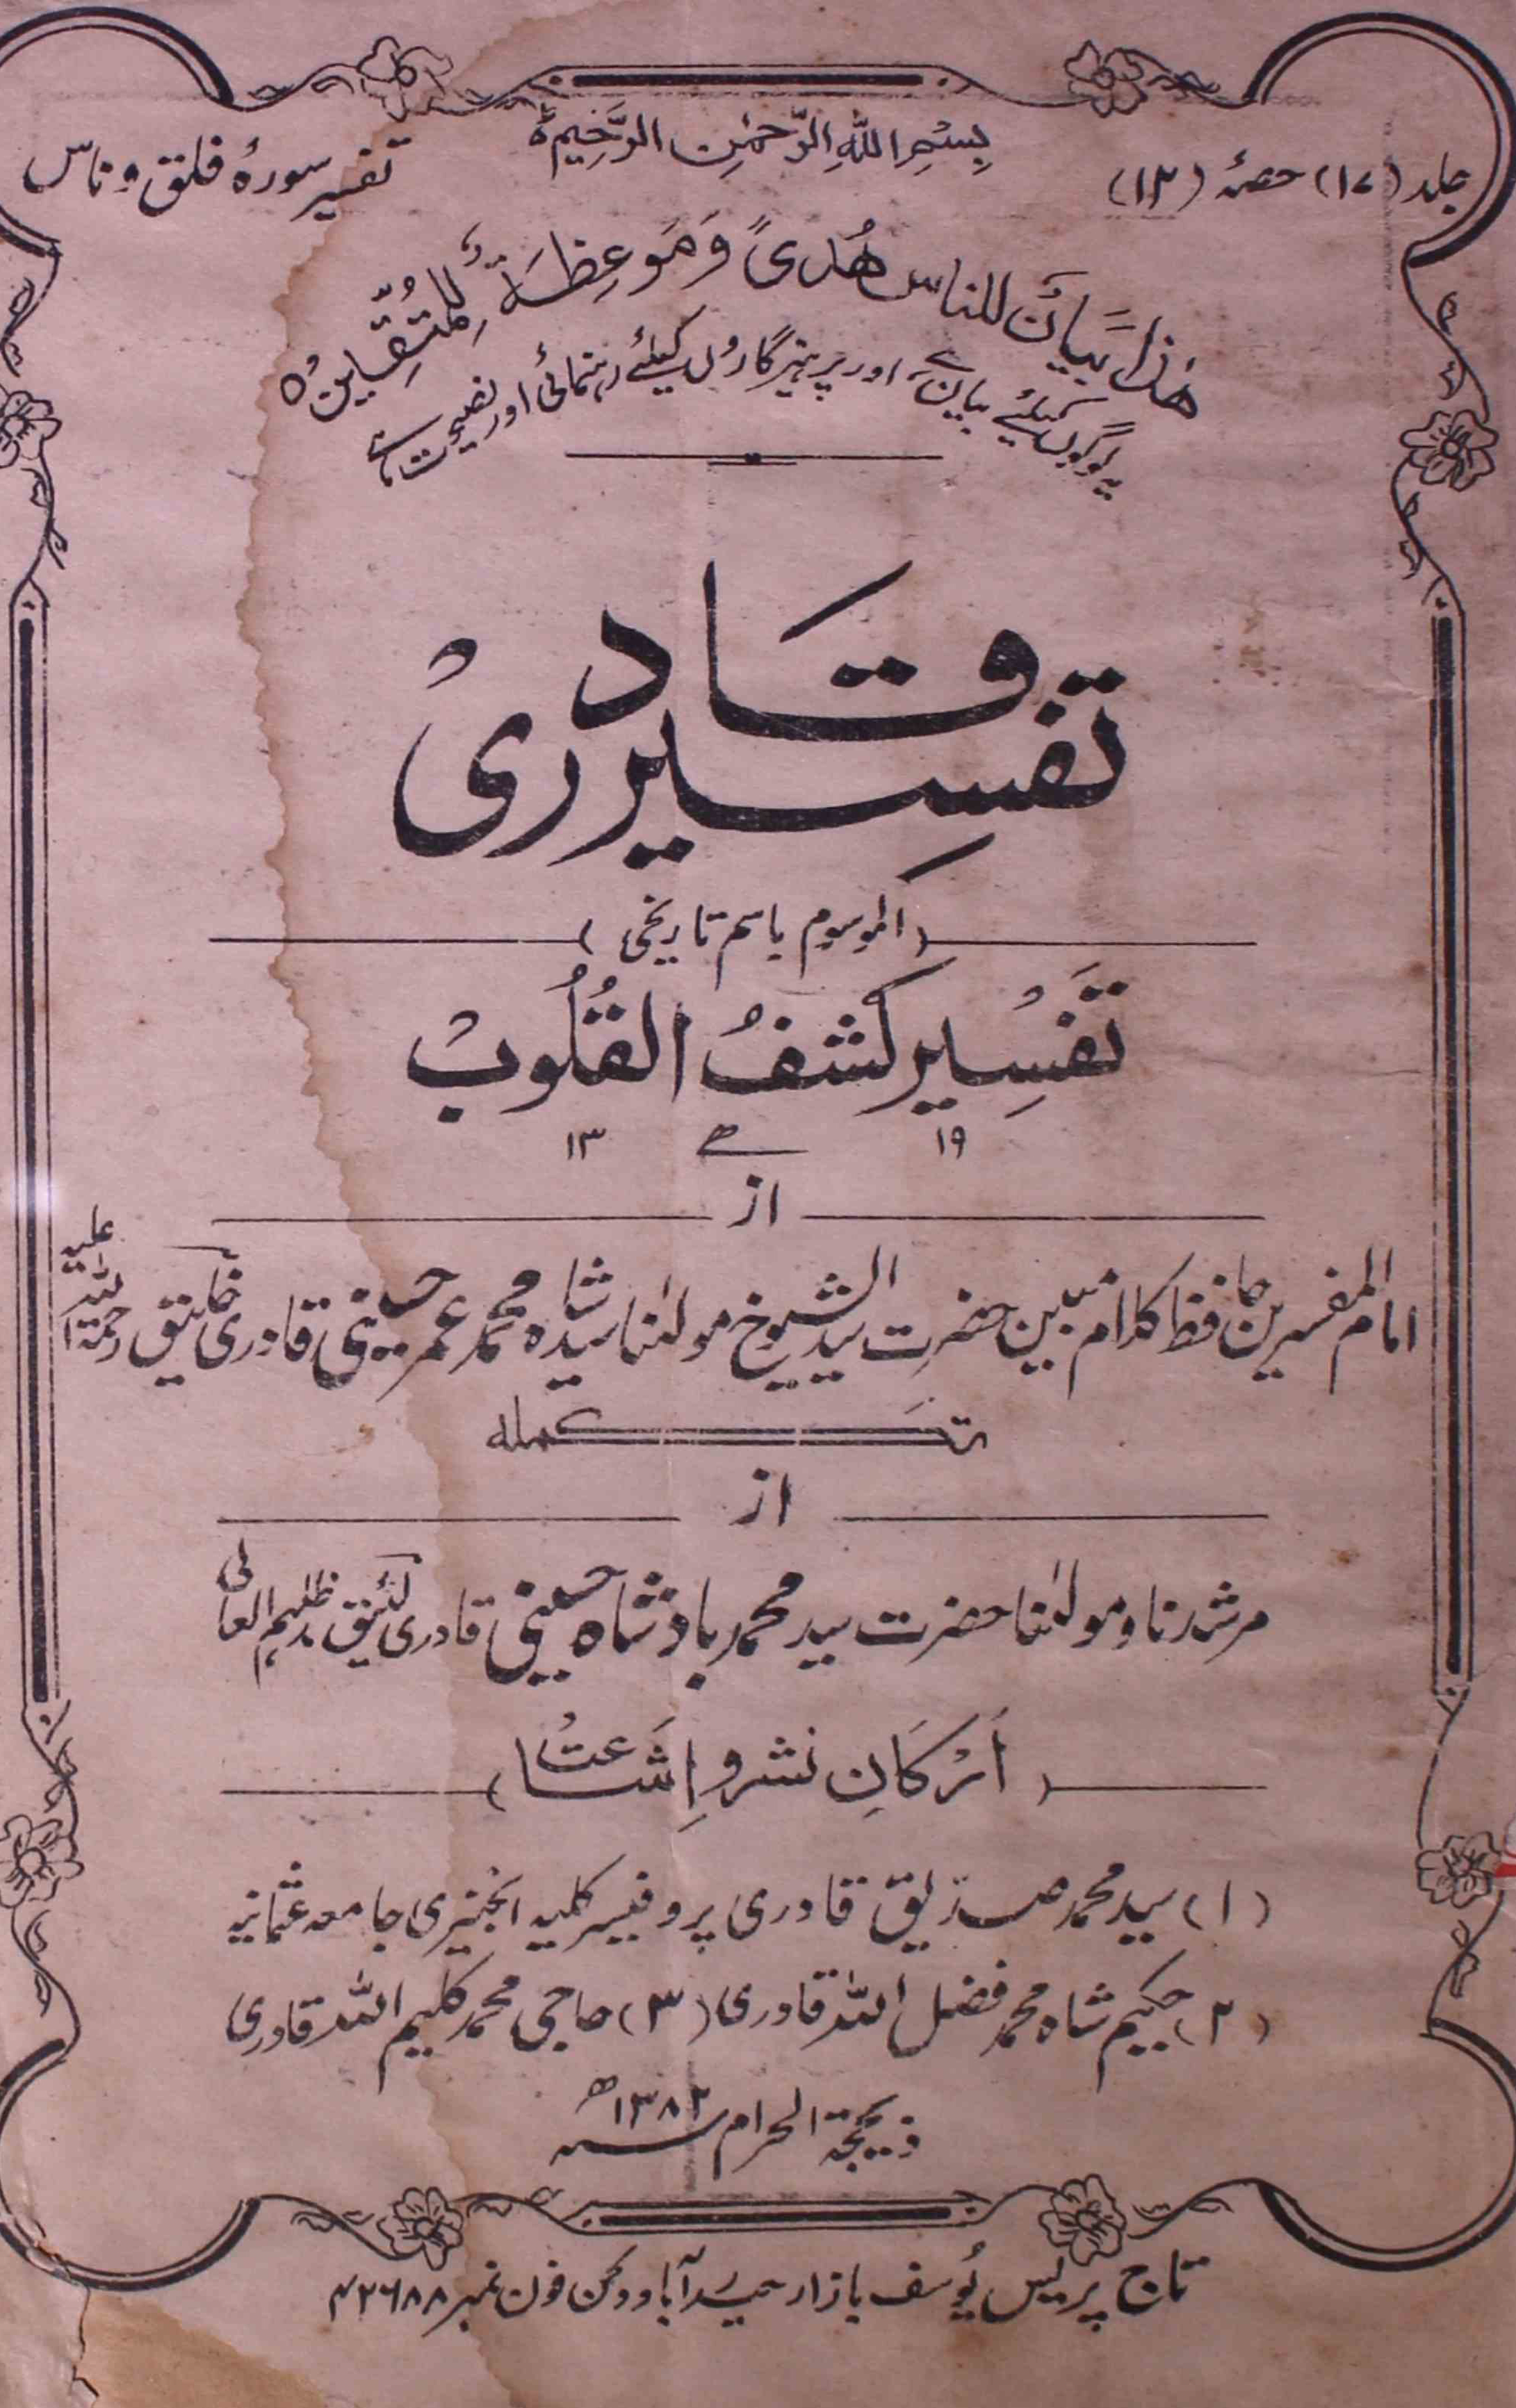 بِسْمِ اللّٰهِ الرَّحْمٰنِ الرَّحِيْمِ
جلد (۱۷) حصہٗ (۱۳)
تفسیر سورۂ فلق و ناس
هٰذَا بَيَانٌ للناس هُدىً وَمَوعِظَةٌ لِلمُتَّقِينَ
یہ لوگوں کیلئے بیان ہے اور پرہیزگاروں کیلئے رہنمائی اور نصیحت ہے
تفسِیر قَادری
(الموسوم باسم تاریخی)
تَفسِیر کشفُ القُلُوب
۱۹ ھ ۱۳
از
امام المفسرین حافظ کلام مبین حضرت سید الشیوخ مولٰنا سید شاہ محمد عمر حسینی قادری خلیق رحمۃ اللہ علیہ
تکملہ
از
مرشدنا و مولٰنا حضرت سید محمد بادشاہ حسینی قادری لئیق مدظلہم العالی
(اَرْکَانِ نشر و اِشَاعت)
(۱) سید محمد صدیق قادری پروفیسر کلیہ انجنیری جامعہ عثمانیہ
(۲) حکیم شاہ محمد فضل اللہ قادری (۳) حاجی محمد کلیم اللہ قادری
ذیحجۃ الحرام سنہ ۱۳۸۲ھ
تاج پریس یُوسف بازار حیدرآباد دکن فون نمبر ۴۲۶۸۸